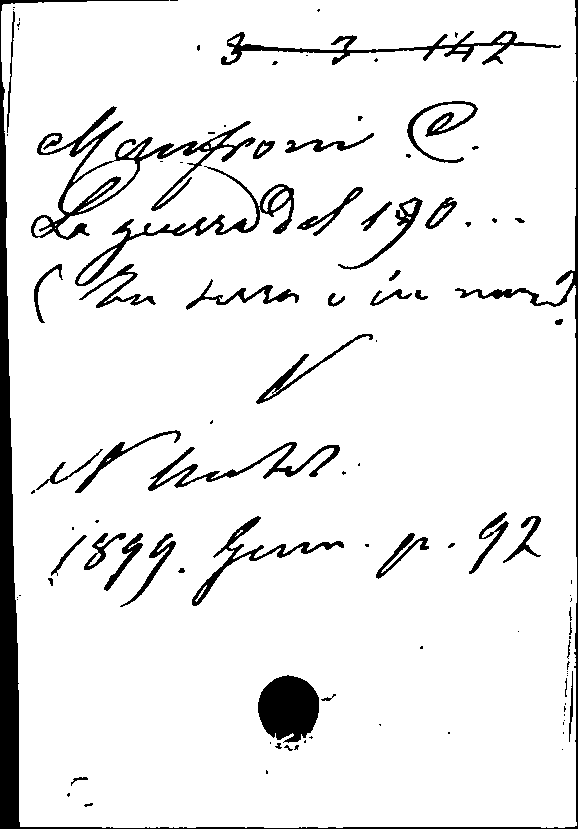 3. 3. 142
Manfroni C.
La guerra del 190...
(In terra e in mare)
N
N Antol.
1899. Genn. p. 92